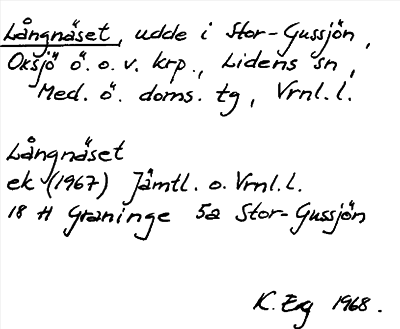 Långnäset, udde i Stor-Gussjön,
Oksjö ö. o. v. krp., Lidens sn,
Med. ö. doms. tg, Vrnl. l.
Långnäset
ek (1967) Jämtl. o. Vrnl. l.
18 H Graninge 5a Stor-Gussjön
K. Eng 1968.